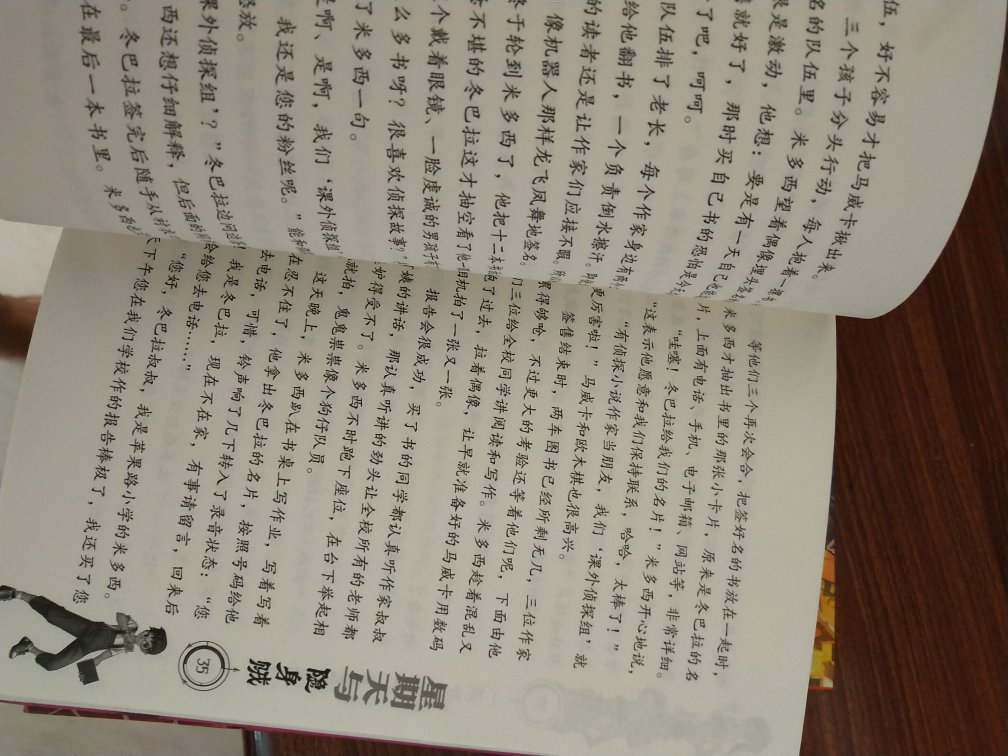 伍，好不容易才把马威卡揪出来。
三个孩子分头行动，每人抱着一
名的队伍里。米多西望着偶像埋
很是激动，他想：要是有一天自己也
就好了，那时买自己书的恐怕
了吧，呵呵。
队伍排了老长，每个作家身边
给他翻书，一个负责倒水擦汗。
的读者还是让作家们应接不暇。
像机器人那样龙飞凤舞地签名。
终于轮到米多西了，他把十二本
不堪的冬巴拉这才抽空看了他一
个戴着眼镜、一脸虔诚的男孩子
么多书呀？很喜欢侦探故事
了米多西一句。
是啊、是啊，我们‘课外侦探
我还是您的粉丝呢。”
怒放。
课外侦探组’？”冬巴拉边问
西还想仔细解释，但后面的
。冬巴拉签完后随手从
在最后一本书里。米多西
等他们三个再次会合，把签好名的书放在一起时，
米多西才抽出书里的那张小卡片，原来是冬巴拉的名
片，上面有电话、手机、电子邮箱、网站等，非常详细。
“哇噻！冬巴拉给我们的名片！”米多西开心地说，
“这表示他愿意和我们保持联系，哈哈，太棒了！”
“有侦探小说作家当朋友，我们‘课外侦探组’就
更厉害啦！”马威卡和欧木棋也很高兴。
签售结束时，两车图书已经所剩无几，三位作家
累得够呛，不过更大的考验还等着他们呢，下面由他
们三位给全校同学讲阅读和写作。米多西趁着混乱又
跑了过去，拉着偶像，让早就准备好的马威卡用数码
相机拍了一张又一张。
报告会很成功，买了书的同学都认真听作家叔叔
阿姨的讲话，那认真听讲的劲头让全校所有的老师都
妒得受不了。米多西不时跑下座位，在台下举起相
就拍，鬼鬼祟祟像个狗仔队员。
这天晚上，米多西趴在书桌上写作业，写着写着
在忍不住了，他拿出冬巴拉的名片，按照号码给他
去电话，可惜，铃声响了几下转入了录音状态：“您
我是冬巴拉，现在不在家，有事请留言，回来后
给您去电话……”
“您好，冬巴拉叔叔，我是苹果路小学的米多西。
天下午您在我们学校作的报告棒极了，我还买了您
星期天与
隐身贼
35